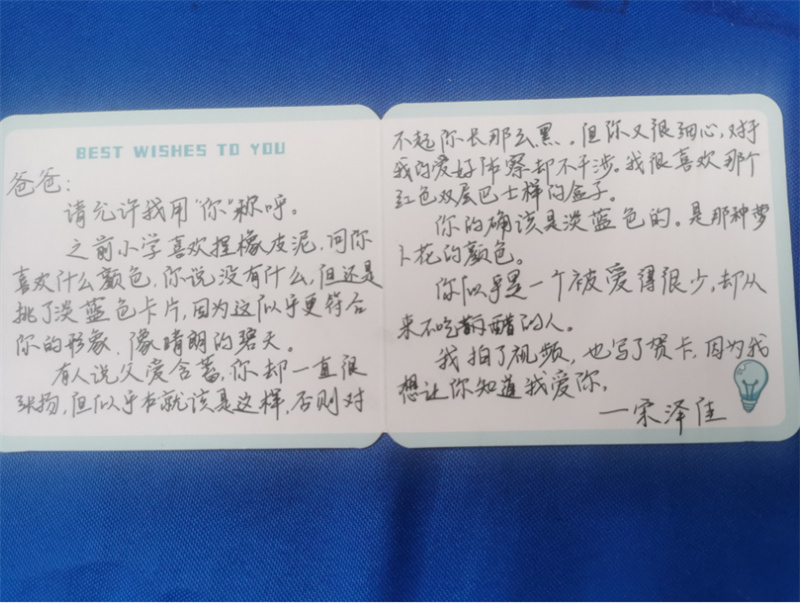 BEST WISHES TO YOU
爸爸：
请允许我用“你”称呼。
之前小学喜欢捏橡皮泥，问你
喜欢什么颜色，你说没有什么，但还是
挑了淡蓝色卡片，因为这似乎更符合
你的形象，像晴朗的碧天。
有人说父爱含蓄，你却一直很
张扬，但似乎本就该是这样，否则对
不起你长那么黑。但你又很细心，对于
我的爱好体察却不干涉。我很喜欢那个
红色双层巴士样的盒子。
你的确该是淡蓝色的。是那种萝
卜花的颜色。
你似乎是一个被爱得很少，却从
来不吃醋的人。
我拍了视频，也写了贺卡，因为我
想让你知道我爱你。
—宋泽佳